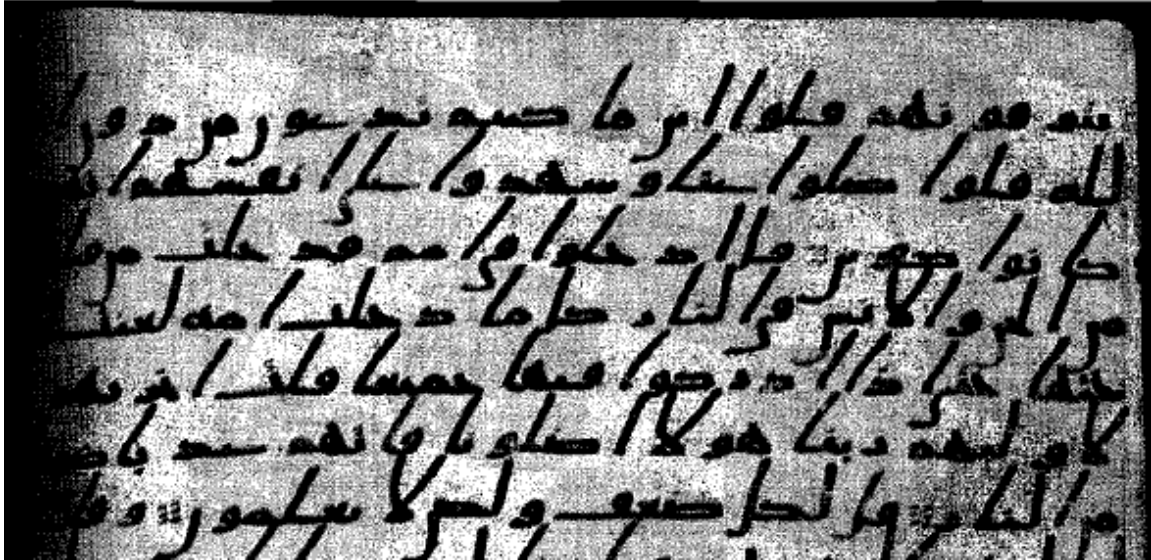 يتوفونهم قالوا اين ما كنتم تدعون من دون ا
لله قالوا ضلوا عنا وشهدوا على انفسهم
كانوا كفرين قال ادخلوا في امم قد خلت من
من الجن والانس في النار كلما دخلت امه لعنت
اختها حتى اذا اداركوا فيها جميعا قالت اخريهم
لاوليهم ربنا هولا اضلونا فاتهم عذابا
من النار قال لكل ضعف ولكن لا تعلمون وقا